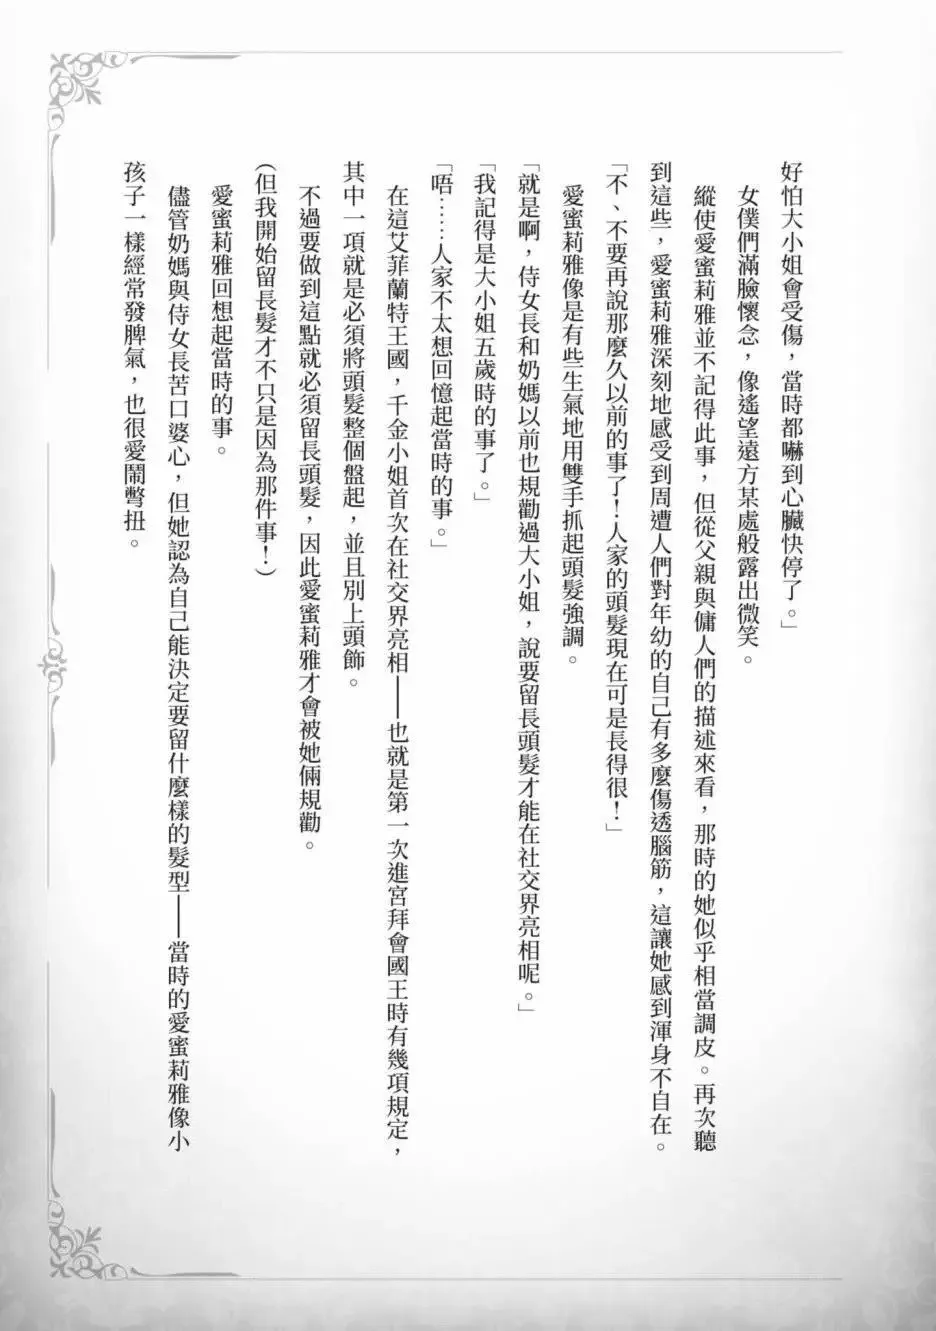 好怕大小姐會受傷，當時都嚇到心臟快停了。」
女僕們滿臉懷念，像遙望遠方某處般露出微笑。
縱使愛蜜莉雅並不記得此事，但從父親與傭人們的描述來看，那時的她似乎相當調皮。再次聽
到這些，愛蜜莉雅深刻地感受到周遭人們對年幼的自己有多麼傷透腦筋，這讓她感到渾身不自在。
「不、不要再說那麼久以前的事了！人家的頭髮現在可是長得很！」
愛蜜莉雅像是有些生氣地用雙手抓起頭髮強調。
「就是啊，侍女長和奶媽以前也規勸過大小姐，說要留長頭髮才能在社交界亮相呢。」
「我記得是大小姐五歲時的事了。」
「唔……人家不太想回憶起當時的事。」
在這艾菲蘭特王國，千金小姐首次在社交界亮相——也就是第一次進宮拜會國王時有幾項規定，
其中一項就是必須將頭髮整個盤起，並且別上頭飾。
不過要做到這點就必須留長頭髮，因此愛蜜莉雅才會被她倆規勸。
(但我開始留長髮才不只是因為那件事！)
愛蜜莉雅回想起當時的事。
儘管奶媽與侍女長苦口婆心，但她認為自己能決定要留什麼樣的髮型——當時的愛蜜莉雅像小
孩子一樣經常發脾氣，也很愛鬧彆扭。